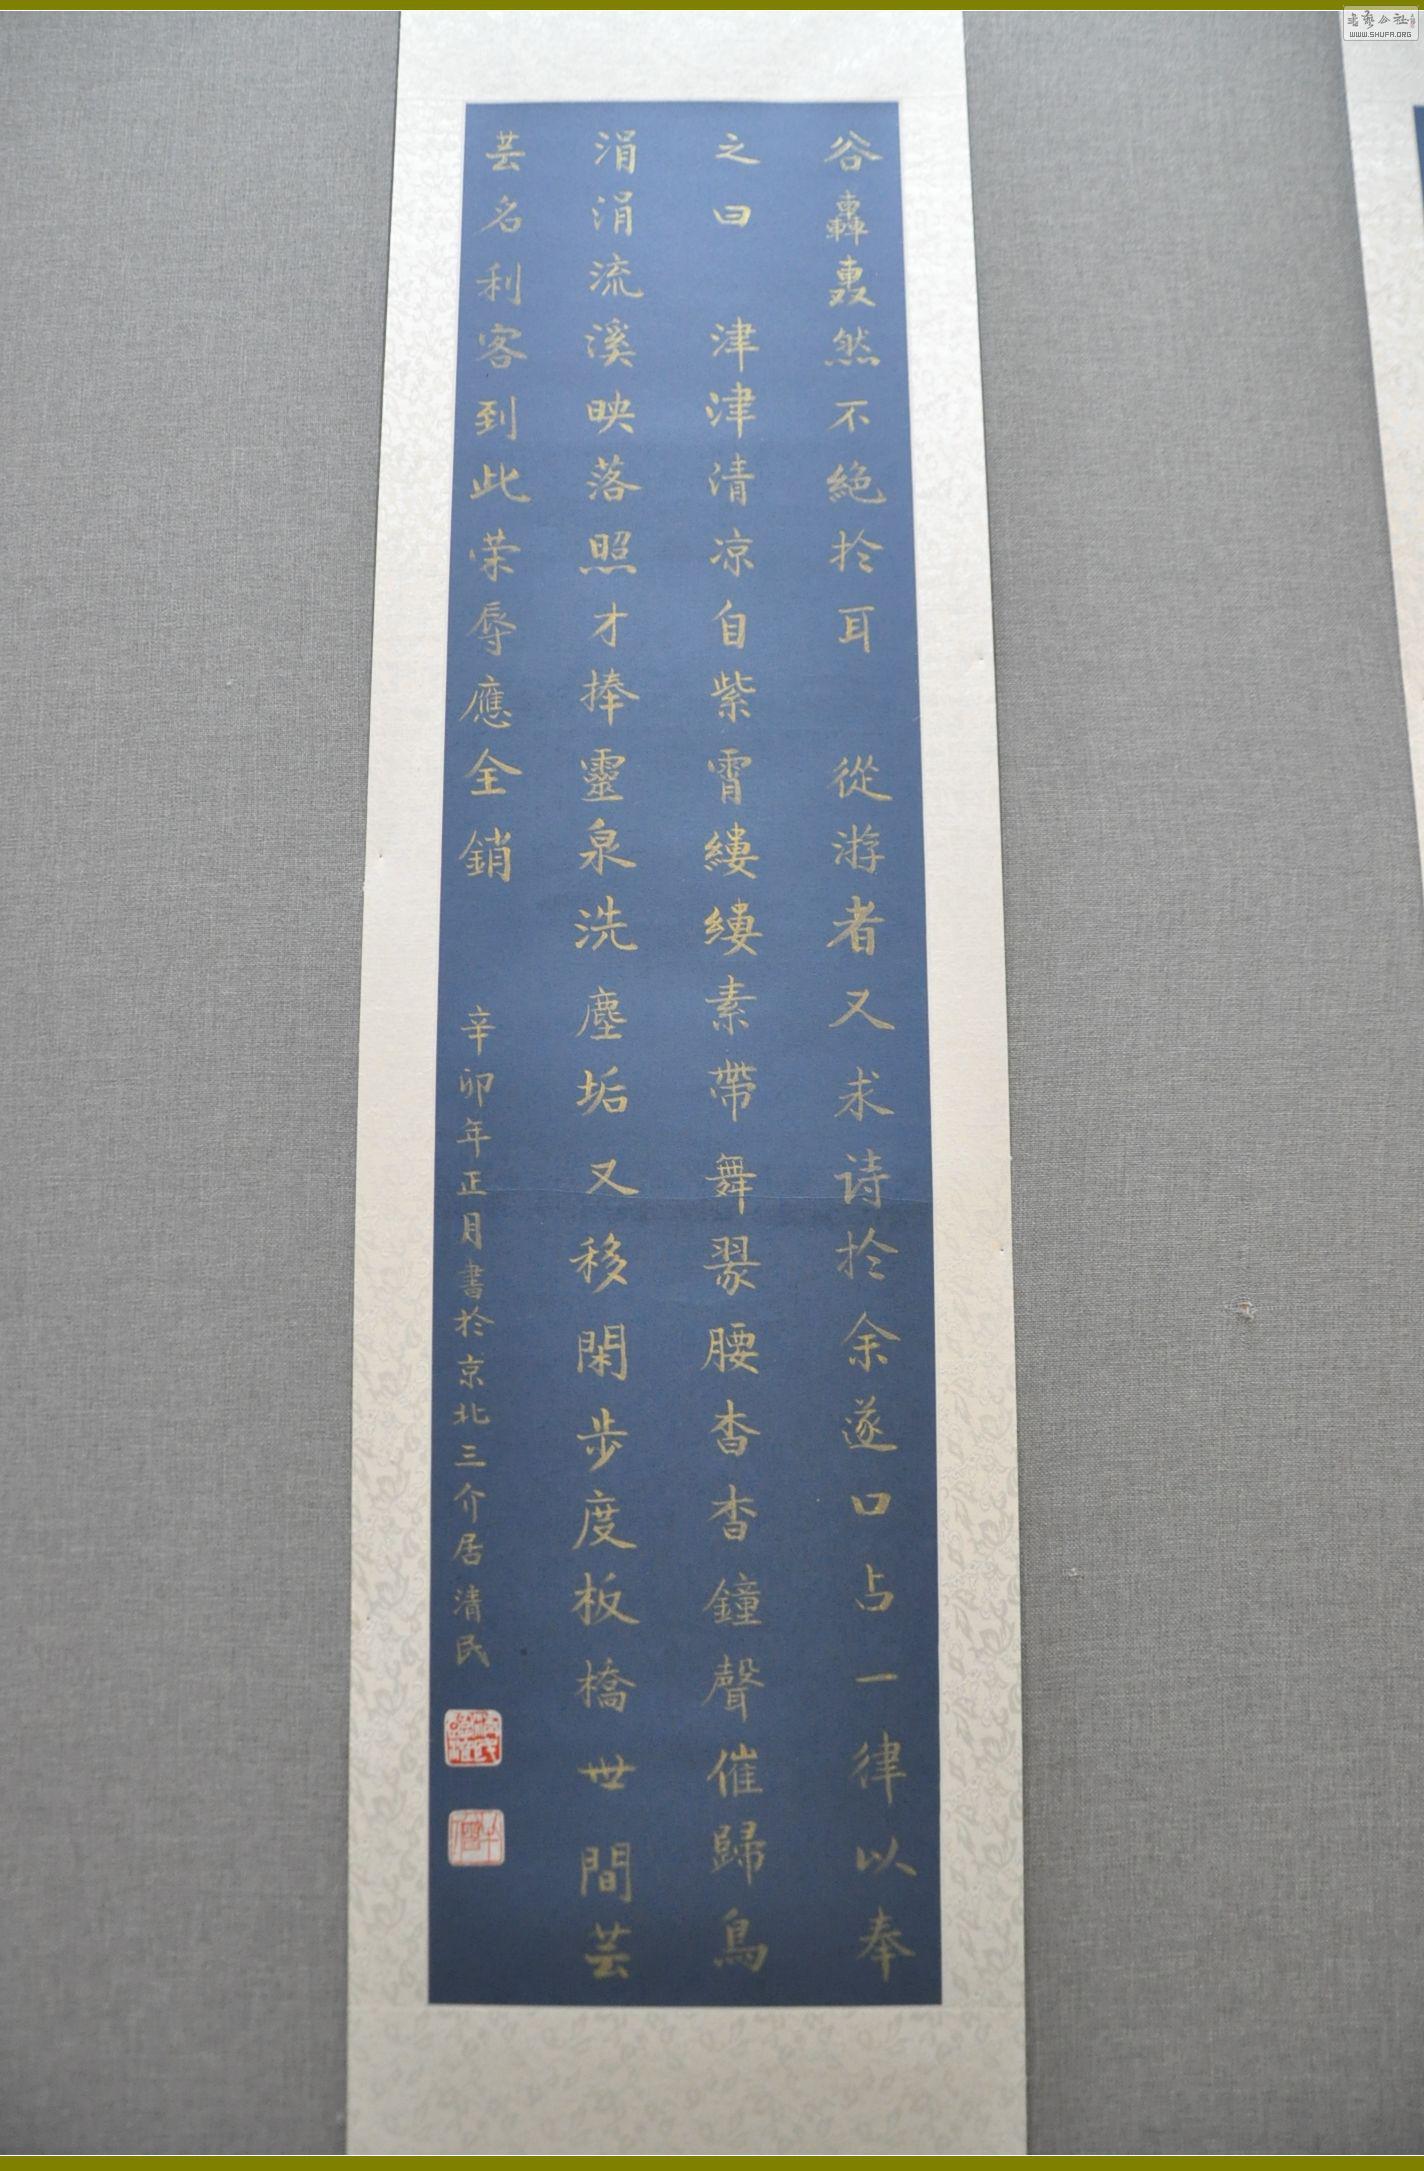 谷轟轰然不絶於耳 從游者又求诗於余遂口占一律以奉
之曰 津津清凉自紫霄縷縷素帶舞翠腰杳杳鐘聲催歸鳥
涓涓流溪映落照才捧靈泉洗塵垢又移閑步度板橋世間芸
芸名利客到此荣辱應全銷
辛卯年正月書於京北三介居清民
WWW.SHUFA.ORG